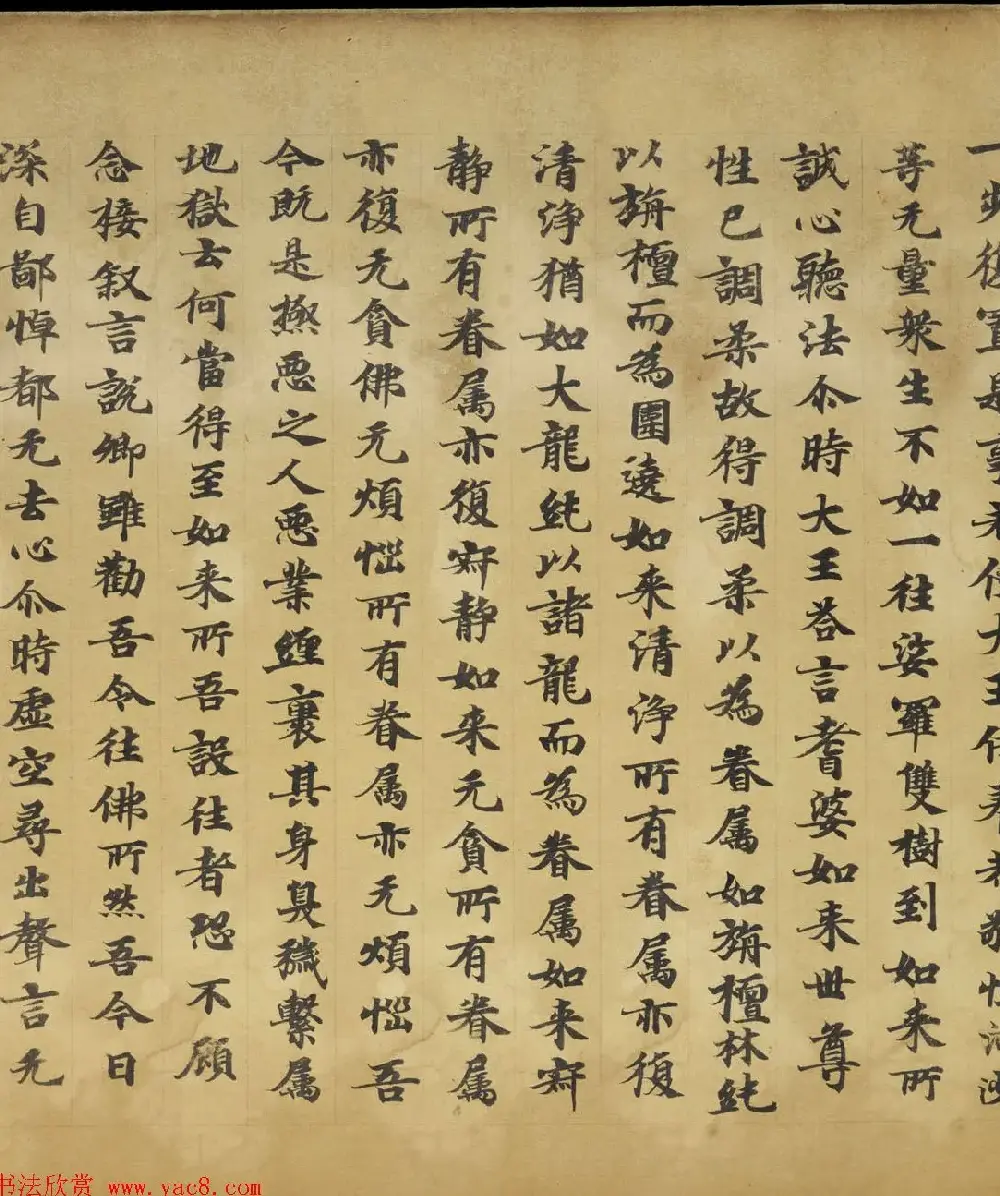 復置是事若使大王供養恭敬恒河沙
等无量衆生不如一往娑羅雙樹到如来所
誠心聽法尒時大王荅言耆婆如来世尊
性已調柔故得調柔以為眷属如旃檀林純
以旃檀而為圍遶如来清淨所有眷属亦復
清淨猶如大龍純以諸龍而為眷属如来寂
静所有眷属亦復寂静如来无貪所有眷属
亦復无貪佛无煩惱所有眷属亦无煩惱吾
今既是極惡之人惡業纏裹其身臭穢繫属
地獄云何當得至如来所吾設往者恐不顧
念接叙言説卿雖勸吾令往佛所然吾今日
深自鄙悼都无去心尒時虚空尋出聲言无
书法欣赏 www.yac8.com